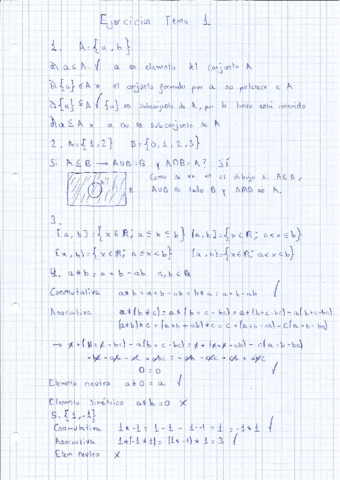 Ejercicios Tema 1
1. A={a,b}
a) a∈A √ a es elemento del conjunto A
b) {a}∈A x el conjunto formado por a no pertenece a A
c) {a}⊆A √ {a} es subconjunto de A, por lo tanto está contenido
d) a⊆A x a no es subconjunto de A
2. A={1,2} B={0,1,2,3}
Si A⊆B → A∪B=B y A∩B=A? Sí
Como se ve en el dibujo si A⊆B,
B A∪B es todo B y A∩B es A.
3.
[a,b]={x∈R; a≤x≤b} (a,b]={x∈R; a<x≤b}
[a,b)={x∈R; a≤x<b} (a,b)={x∈R; a<x<b}
4. a*b=a+b-ab a,b∈
Conmutativa a*b=a+b-ab=b*a=a+b-ab √
Asociativa a*(b*c)=a*(b+c-bc)=a+(b+c-bc)-a(b+c-bc)
(a*b)*c=(a+b-ab)*c=c+(a+b-ab)-c(a+b-ab)
0=0 √
Elemento neutro a*0=a √
Elemento simétrico a*b=0 x
5. {1,-1}
Conmutativa 1*-1=1-1-1·-1=1=-1*1 √
Asociativa 1*(-1*1)=(1*-1)*1= √
Elem neutro x